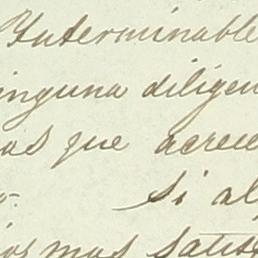 Interminable
inguna diligen
as que acree
Si al
ios mas satis